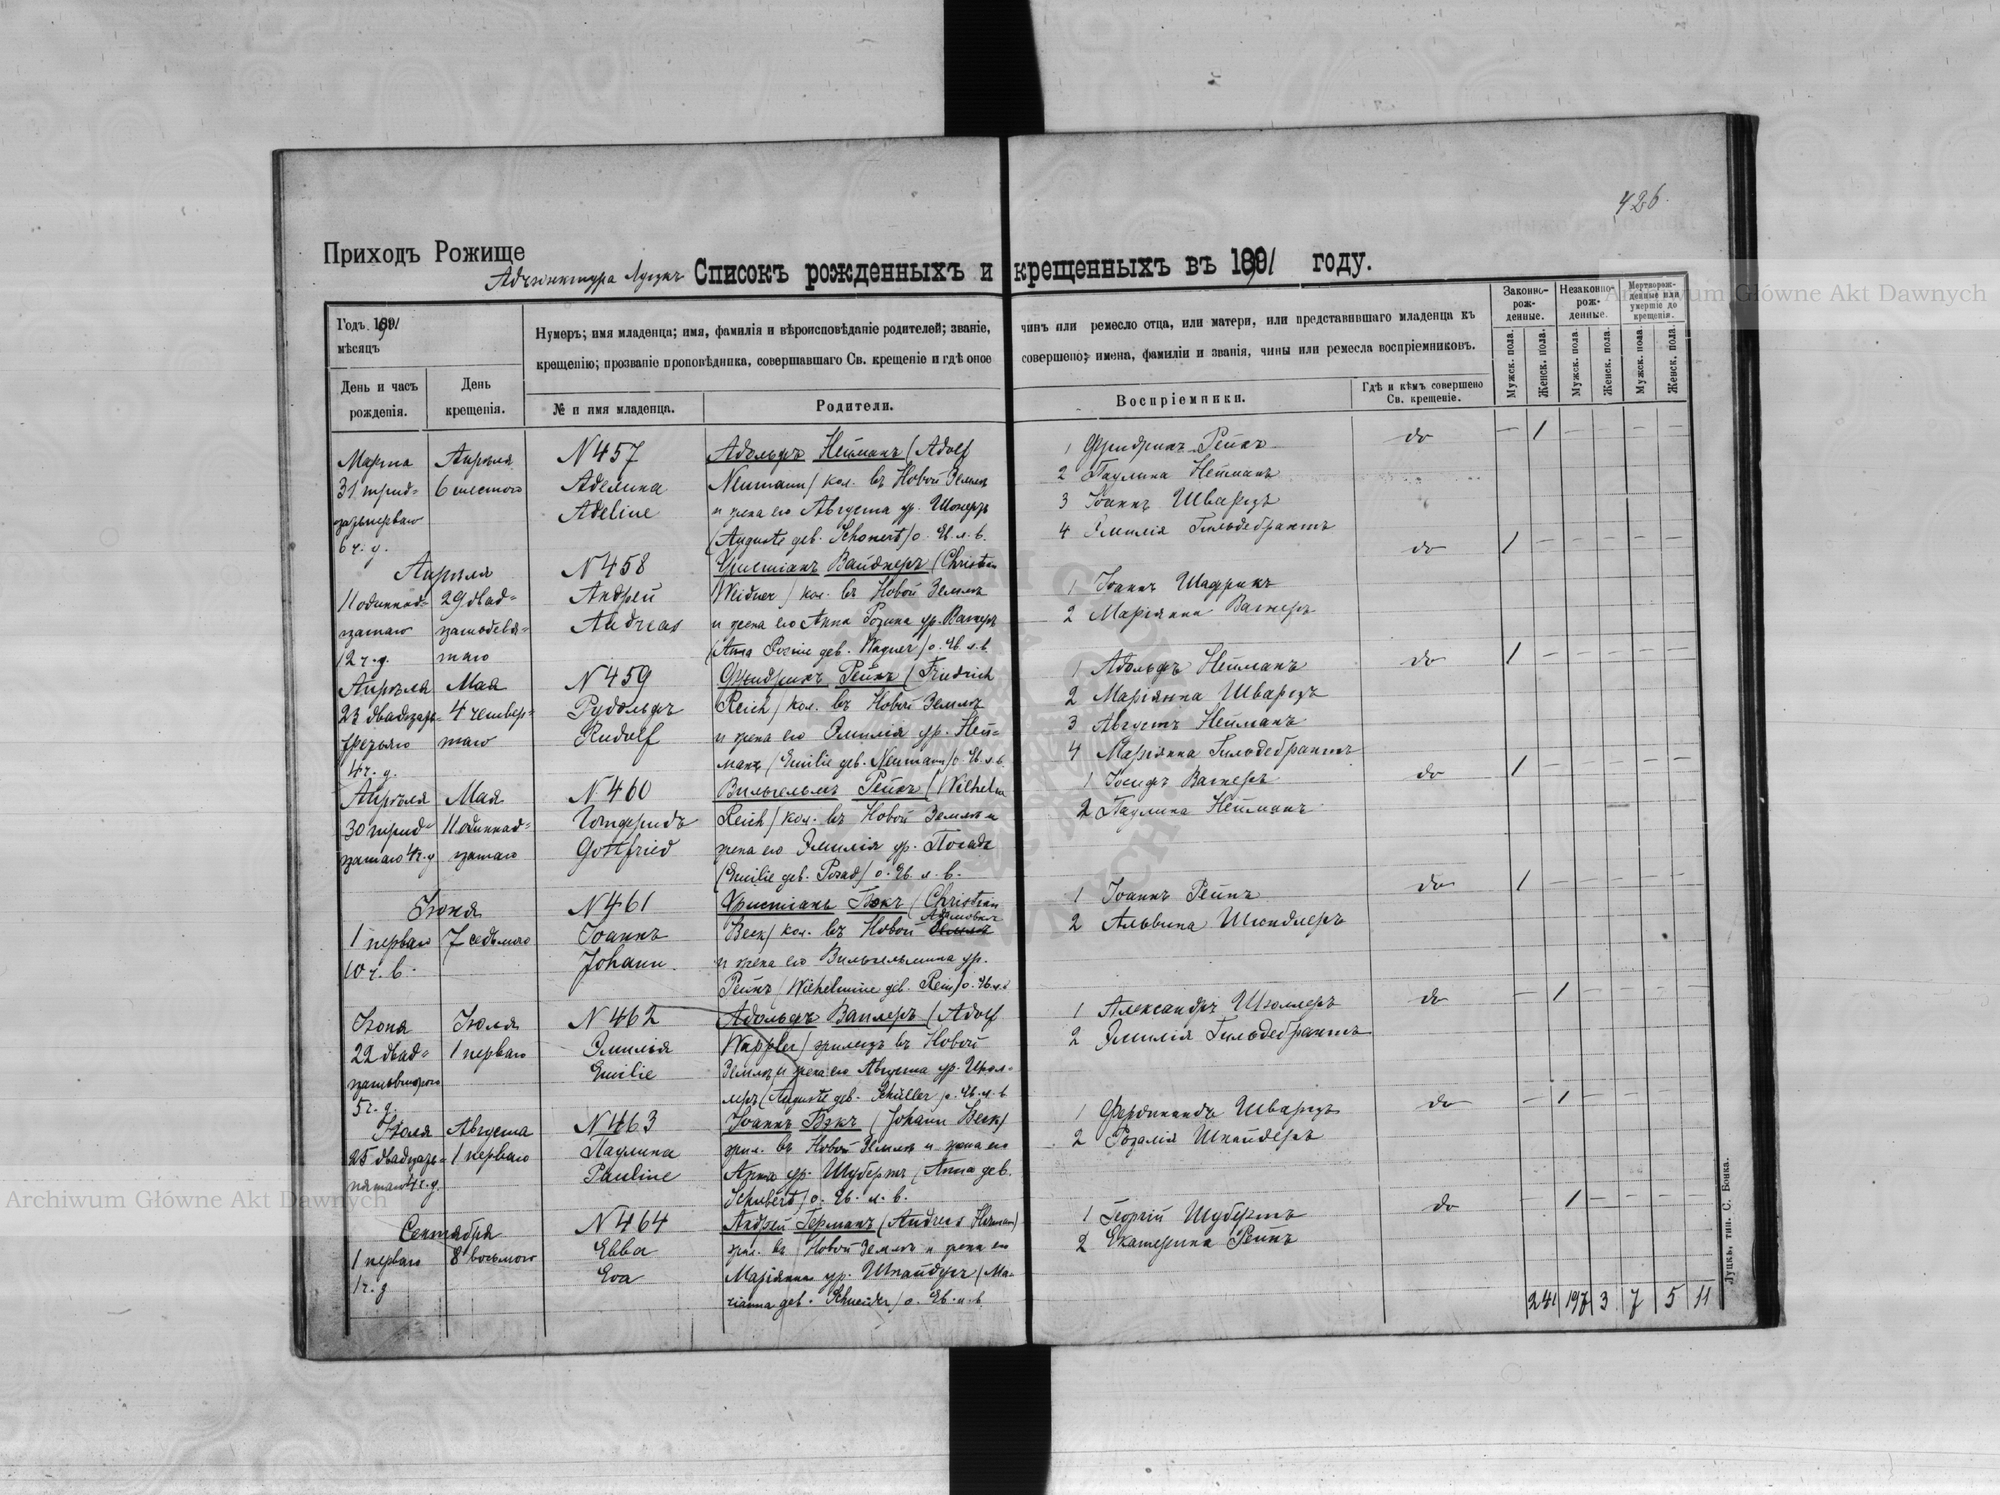 426.
Приходъ Рожище
Адъюнктура Луцкъ Списокъ рожденныхъ и крещенныхъ въ 1891 году.
Годъ 1891
мѣсяцъ
День и часъ рожденія.
День крещенія.
Нумеръ; имя младенца; имя, фамилія и вѣроисповѣданіе родителей; званіе, чинъ или ремесло отца, или матери, или представившаго младенца къ
крещенію; прозваніе проповѣдника, совершавшаго Св. крещеніе и гдѣ оное совершено; имена, фамиліи и званія, чины или ремесла воспріемниковъ.
№ и имя младенца.
Родители.
Воспріемники.
Гдѣ и кѣмъ совершено Св. крещеніе.
Законно-рож-денные.
Незаконно-рож-денные.
Мертворож-денные или умершіе до крещенія.
Мужск. пола.
Женск. пола.
Мужск. пола.
Женск. пола.
Мужск. пола.
Женск. пола.
Марта
31 трид=
цатьперваго
6 ч. у.
Апрѣля
6 шестого
N 457
Аделина
Adeline
Адольфъ Нейманъ (Adolf
Neumann) кол. въ Новой Землѣ
и жена его Августа ур. Шонертъ
(Auguste geb. Schonert) о. Ев. л. в.
1 Фридрихъ Рейхъ
2 Паулина Нейманъ
3 Іоаннъ Шварцъ
4 Эмилія Гильдебрантъ
do
— 1 — — — —
Апрѣля
11 одиннад=
цатаго
12 ч. д.
29 двад=
цатодевя=
таго
N 458
Андрей
Andreas
Христіанъ Вайднеръ (Christian
Weidner) кол. въ Новой Землѣ
и жена его Анна Розина ур. Вагнеръ
(Anna Rosine geb. Wagner) о. Ев. л. в.
1 Іоаннъ Шафрикъ
2 Маріянна Вагнеръ
do
1 — — — — —
Апрѣля
23 двадцать=
третьяго
4 ч. д.
Мая
4 четвер=
таго
N 459
Рудольфъ
Rudolf
Фридрихъ Рейхъ (Friedrich
Reich) кол. въ Новой Землѣ
и жена его Эмилія ур. Ней=
манъ (Emilie geb. Neumann) о. Ев. л. в.
1 Адольфъ Нейманъ
2 Маріянна Шварцъ
3 Августъ Нейманъ
4 Маріянна Гильдебрантъ
do
1 — — — — —
Апрѣля
30 трид=
цатаго 4 ч. у
Мая
11 одиннад=
цатаго
N 460
Готфридъ
Gottfried
Вильгельмъ Рейхъ (Wilhelm
Reich) кол. въ Новой Землѣ и
жена его Эмилія ур. Посадъ
(Emilie geb. Posad) о. Ев. л. в.
1 Іосифъ Вагнеръ
2 Паулина Нейманъ
do
1 — — — — —
Іюня
1 перваго
10 ч. в.
7 седьмого
N 461
Іоаннъ
Johann.
Христіанъ Бэкъ (Christian
Beck) кол. въ Новой Землѣ
и жена его Вильгельмина ур.
Рейнъ (Wilhelmine geb. Rein) о. Ев. л. в.
1 Іоаннъ Рейнъ
2 Альвина Шиндлеръ
do
1 — — — — —
Іюня
22 двад=
цатьвторого
5 ч. д.
Іюля
1 перваго
N 462
Эмилья
Emilie
Адольфъ Ваплеръ (Adolf
Wappler) жилецъ въ Новой
Землѣ и жена его Августа ур. Шюл=
леръ (Auguste geb. Schüller) о. Ев. л. в
1 Александръ Шюллеръ
2 Эмилія Гильдебрантъ
do
— 1 — — — —
Іюля
25 двадцать=
пятаго 4 ч. д.
Августа
1 перваго
N 463
Паулина
Pauline
Іоаннъ Бэкъ (Johann Beck)
жил. въ Новой Землѣ и жена его
Анна ур. Шубертъ (Anna geb.
Schubert) о. Ев. л. в.
1 Фердинандъ Шварцъ
2 Розалія Шнайдеръ
do
— 1 — — — —
Сентября
1 перваго
1 ч. д
8 восьмого
N 464
Евва
Eva
Андрей Германъ (Andreas Herman)
жил. въ Новой Землѣ и жена его
Маріянна ур. Шнайдеръ (Ma-
rianna geb. Schneider) о. Ев. л. в
1 Георгій Шубертъ
2 Екатерина Рейнъ
do
— 1 — — — —
241 197 3 7 5 11
Луцкъ, тип. С. Бонка.
Archiwum Główne Akt Dawnych
Archiwum Główne Akt Dawnych